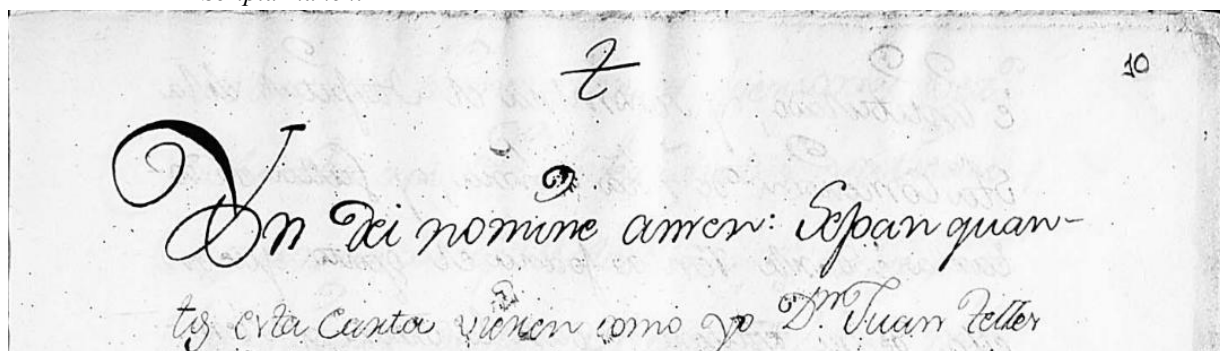 10
Yn Dei nomine amen: Sepan quan-
tos esta Carta vieren como yo Dn Juan Teller